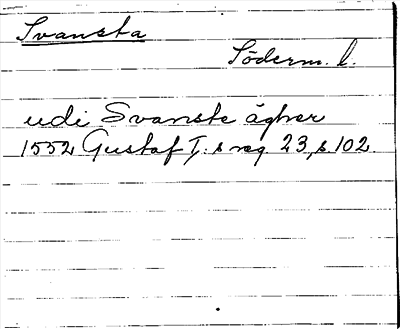 Svansta
Söderm. l.
udi Svanste ägher
1552 Gustaf I: s reg. 23, s. 102